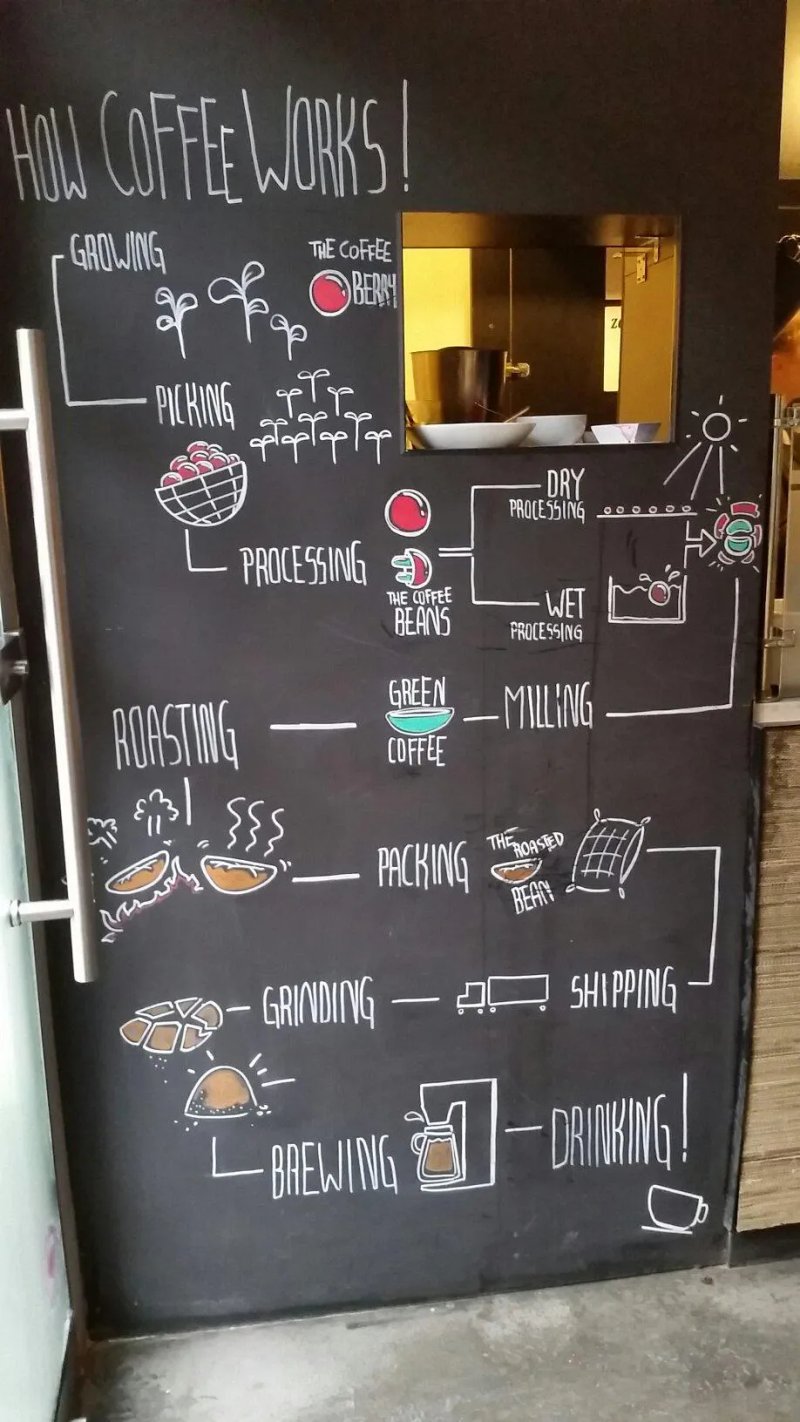 HOW COFFEE WORKS!
GROWING
THE COFFEE
BERRY
PICKING
PROCESSING
THE COFFEE
BEANS
DRY
PROCESSING
WET
PROCESSING
MILLING
GREEN
COFFEE
ROASTING
PACKING
THE ROASTED
BEAN
SHIPPING
GRINDING
BREWING
DRINKING!